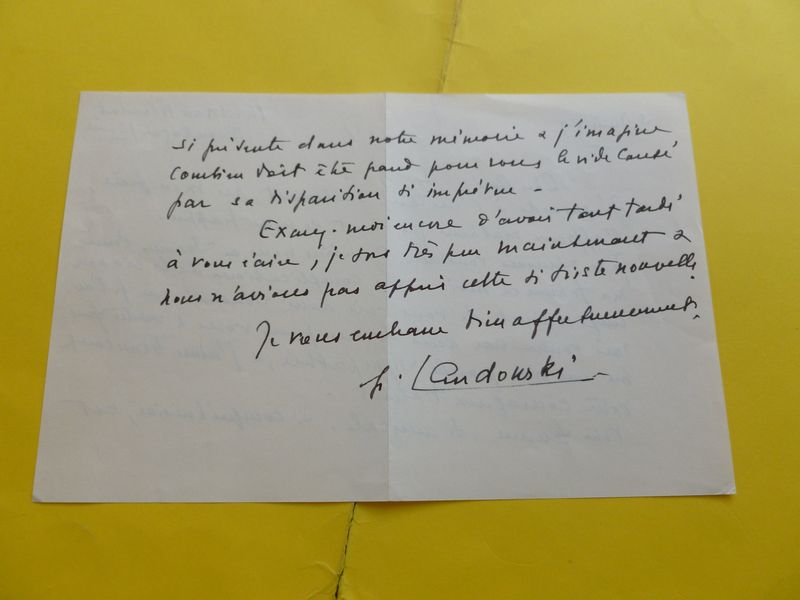 si présente dans notre mémoire & j'imagine
combien doit être grand pour vous le vide causé
par sa disparition si imprévue -
Excusez-moi encore d'avoir tant tardé
à vous écrire, je sors très peu maintenant &
nous n'avions pas appris cette si triste nouvelle.
Je vous embrasse bien affectueusement.
Landowski